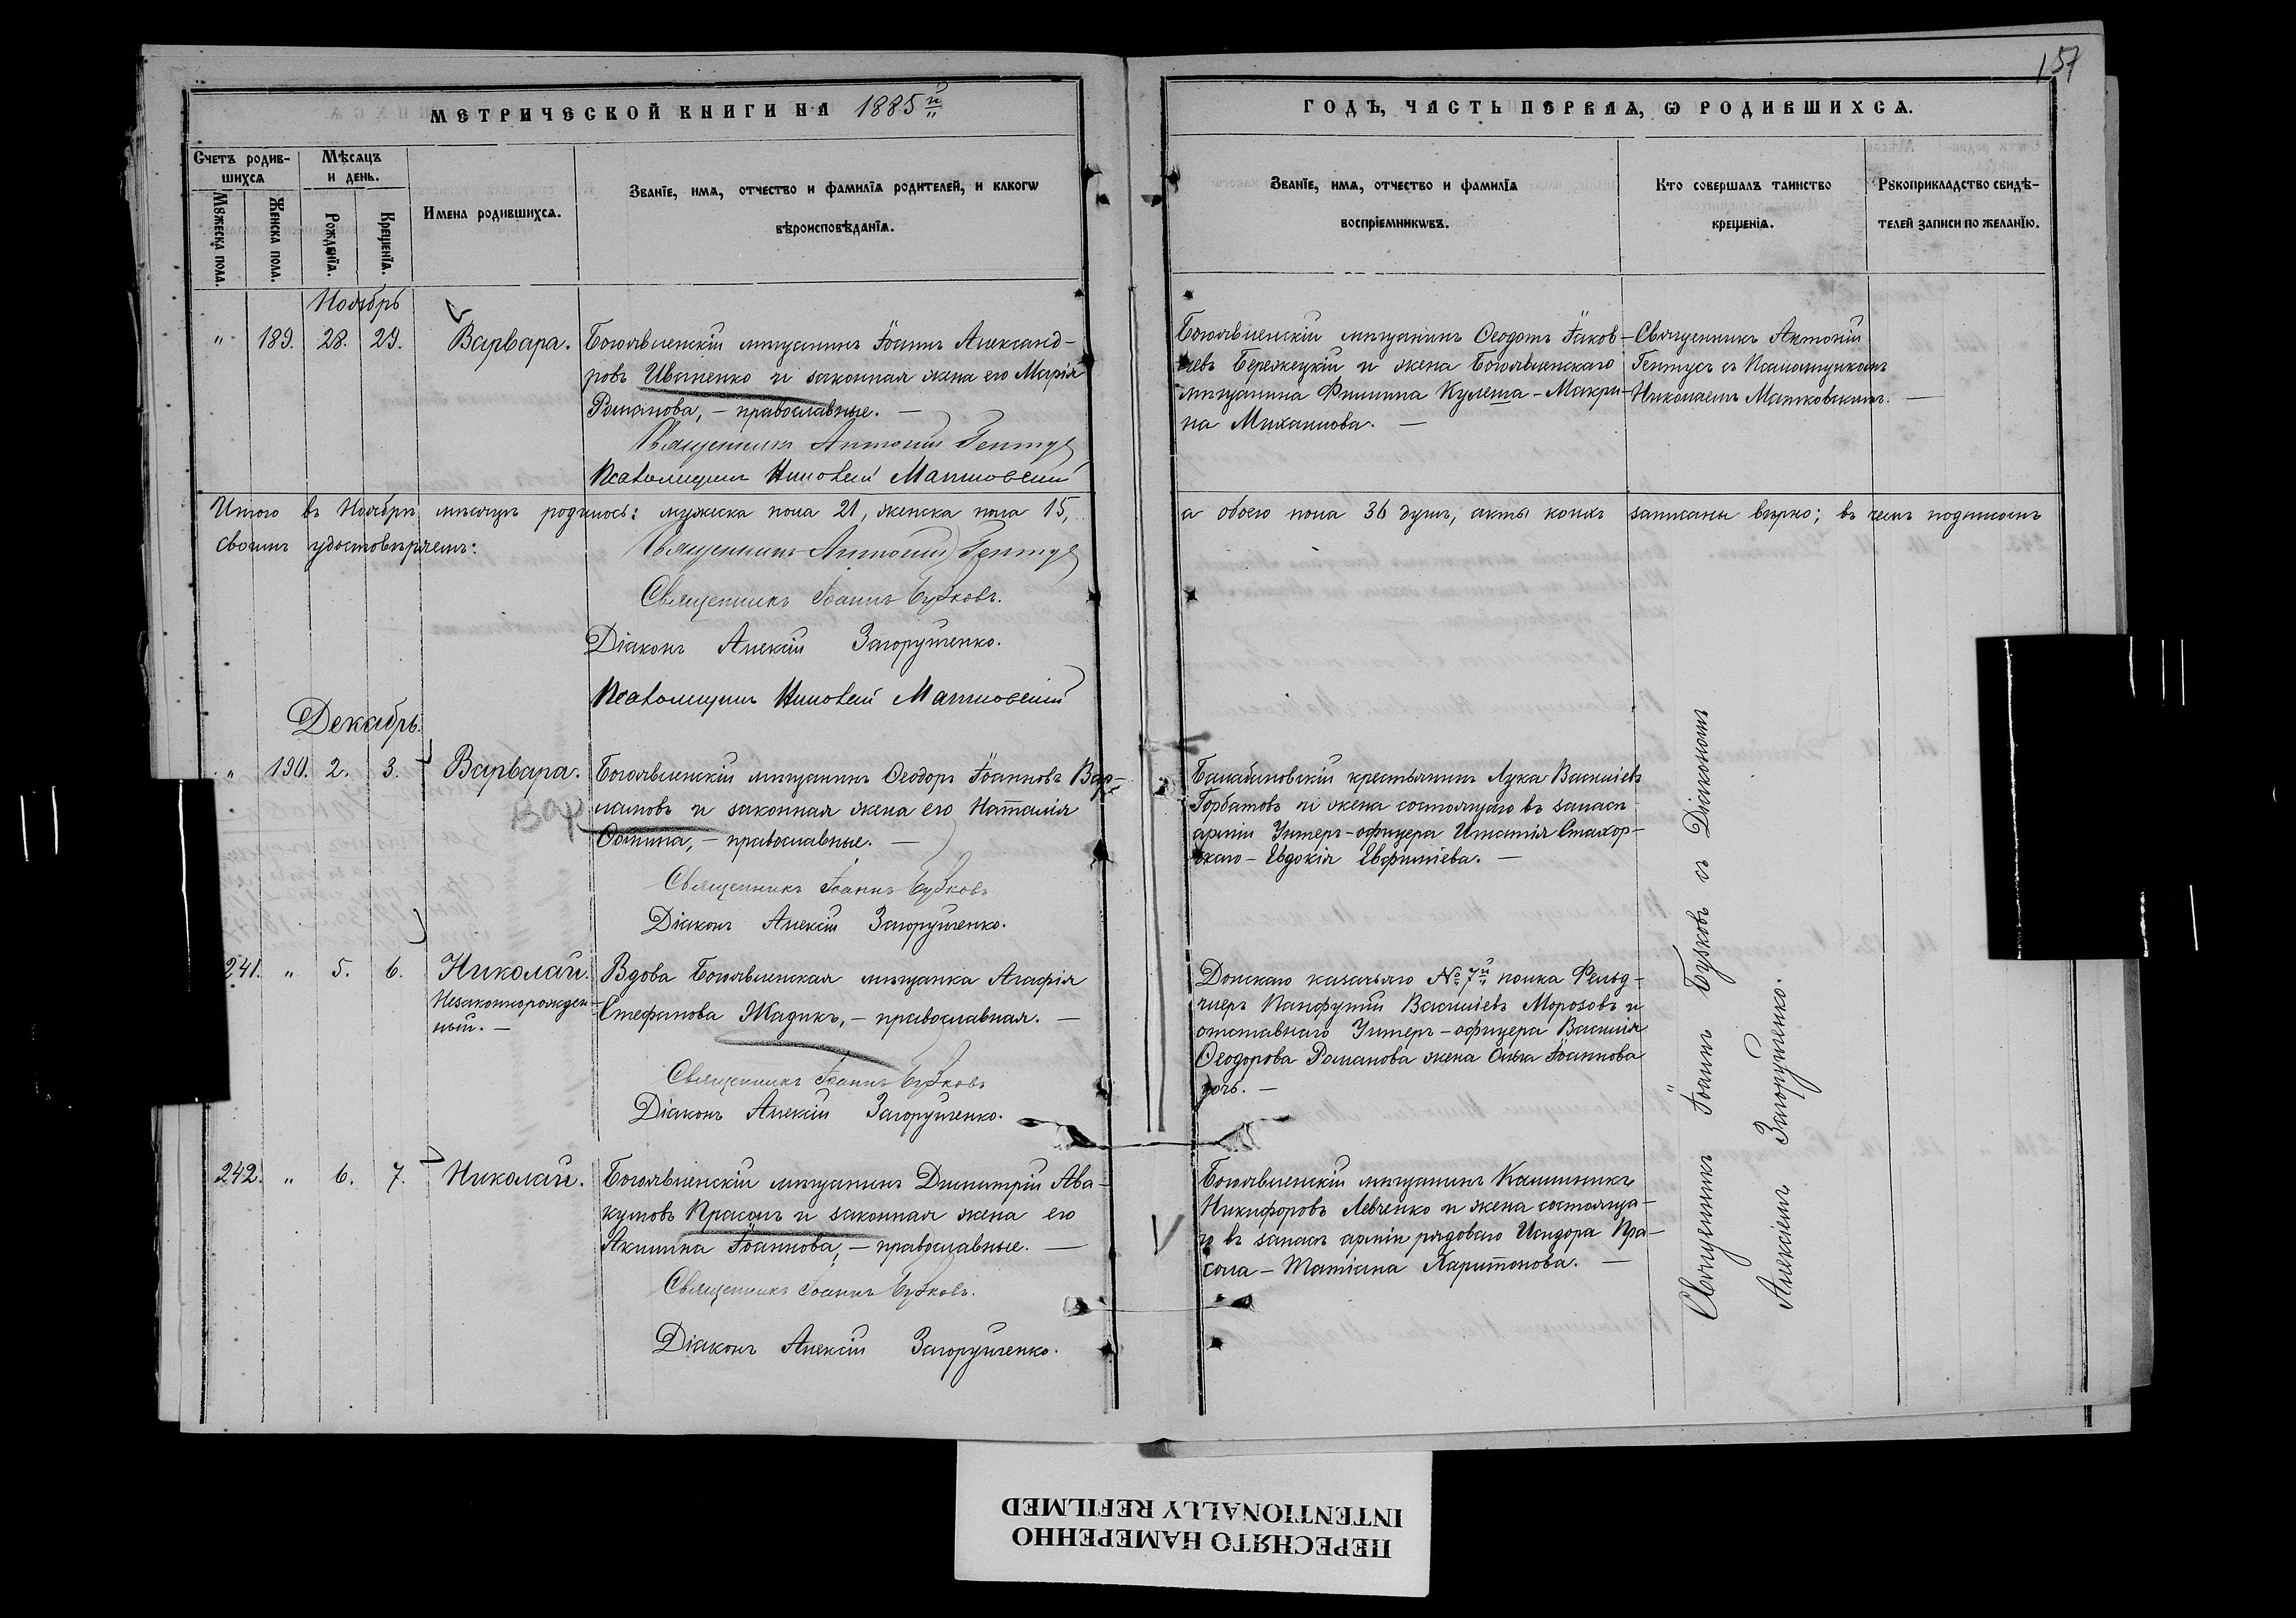 157
МЕТРИЧЕСКОЙ КНИГИ НА 1885й
ГОДЪ, ЧАСТЬ ПЕРВАѦ, Ѡ РОДИВШИХСѦ.
Счетъ родив-
шихсѧ
Мѣсѧцъ
и день.
Мꙋжеска пола.
Женска пола.
Рожденїѧ.
Крещенїѧ.
Имена родившихсѧ.
Званїе, имѧ, отчество и фамилїѧ родителей, и какогѡ
вѣроисповѣданїѧ.
Званїе, имѧ, отчество и фамилїѧ
воспрїемникѡвъ.
Кто совершалъ таинство
крещенїѧ.
Рꙋкоприкладство свидѣ-
телей записи по желанїю.
Ноябрь
" 189. 28. 29. Варвара.
Богоявленскій мѣщанинъ Іоаннъ Александ-
ровъ Иваненко и законная жена его Марія
Романова, - православные. -
Священникъ Антоній Гентус
Псаломщикъ Николай Матковскій
Богоявленскій мѣщанинъ Ѳеодотъ Іаков-
левъ Бережецкій и жена Богоявленскаго
мѣщанина Филиппа Кулеша - Макри-
на Михаилова. -
Священникъ Антоній
Гентусъ съ Псаломщикомъ
Николаемъ Матковскимъ. -
Итого въ Ноябрѣ мѣсяцѣ родилось: мужеска пола 21, женска пола 15,
а обоего пола 36 душъ, акты коихъ записаны вѣрно; въ чемъ подписомъ
своимъ удостовѣряемъ:
Священникъ Антоній Гентус
Священникъ Іоаннъ Бузковъ.
Діаконъ Алексій Загорулченко.
Псаломщикъ Николай Матковскій
Декабрь.
" 190. 2. 3. Варвара.
Богоявленскій мѣщанинъ Ѳеодоръ Іоанновъ Вар-
ламовъ и законная жена его Наталія
Фомина, - православные. -
Вар
Священникъ Іоаннъ Бузковъ
Діаконъ Алексій Загорулченко.
Балабановскій крестьянинъ Лука Василіевъ
Горбатовъ и жена состоящаго въ запасѣ
арміи Унтеръ-офицера Игнатія Стахор-
скаго - Евдокія Евфиміева. -
241. " 5. 6. Николай.
Незаконнорожден-
ный. -
Вдова Богоявленская мѣщанка Агафія
Стефанова Жадикъ, - православная. -
Священникъ Іоаннъ Бузковъ
Діаконъ Алексій Загорулченко.
Донскаго казачьяго № 7й полка Фельд-
шеръ Панфутій Василіевъ Морозовъ и
отставнаго Унтеръ-офицера Василія
Ѳеодорова Романова жена Ольга Іоаннова
дочь. -
242. " 6. 7. Николай.
Богоявленскій мѣщанинъ Димитрій Ава-
кумовъ Прасолъ и законная жена его
Акилина Іоаннова, - православные. -
Священникъ Іоаннъ Бузковъ.
Діаконъ Алексій Загорулченко.
Богоявленскій мѣщанинъ Каллиникъ
Никифоровъ Левченко и жена состояща-
го въ запасѣ арміи рядового Исидора Пра-
сола - Татіана Харитонова. -
Священникъ Іоаннъ Бузковъ съ Діакономъ
Алексіемъ Загорулченко.
ПЕРЕСНЯТО НАМЕРЕННО
INTENTIONALLY REFILMED